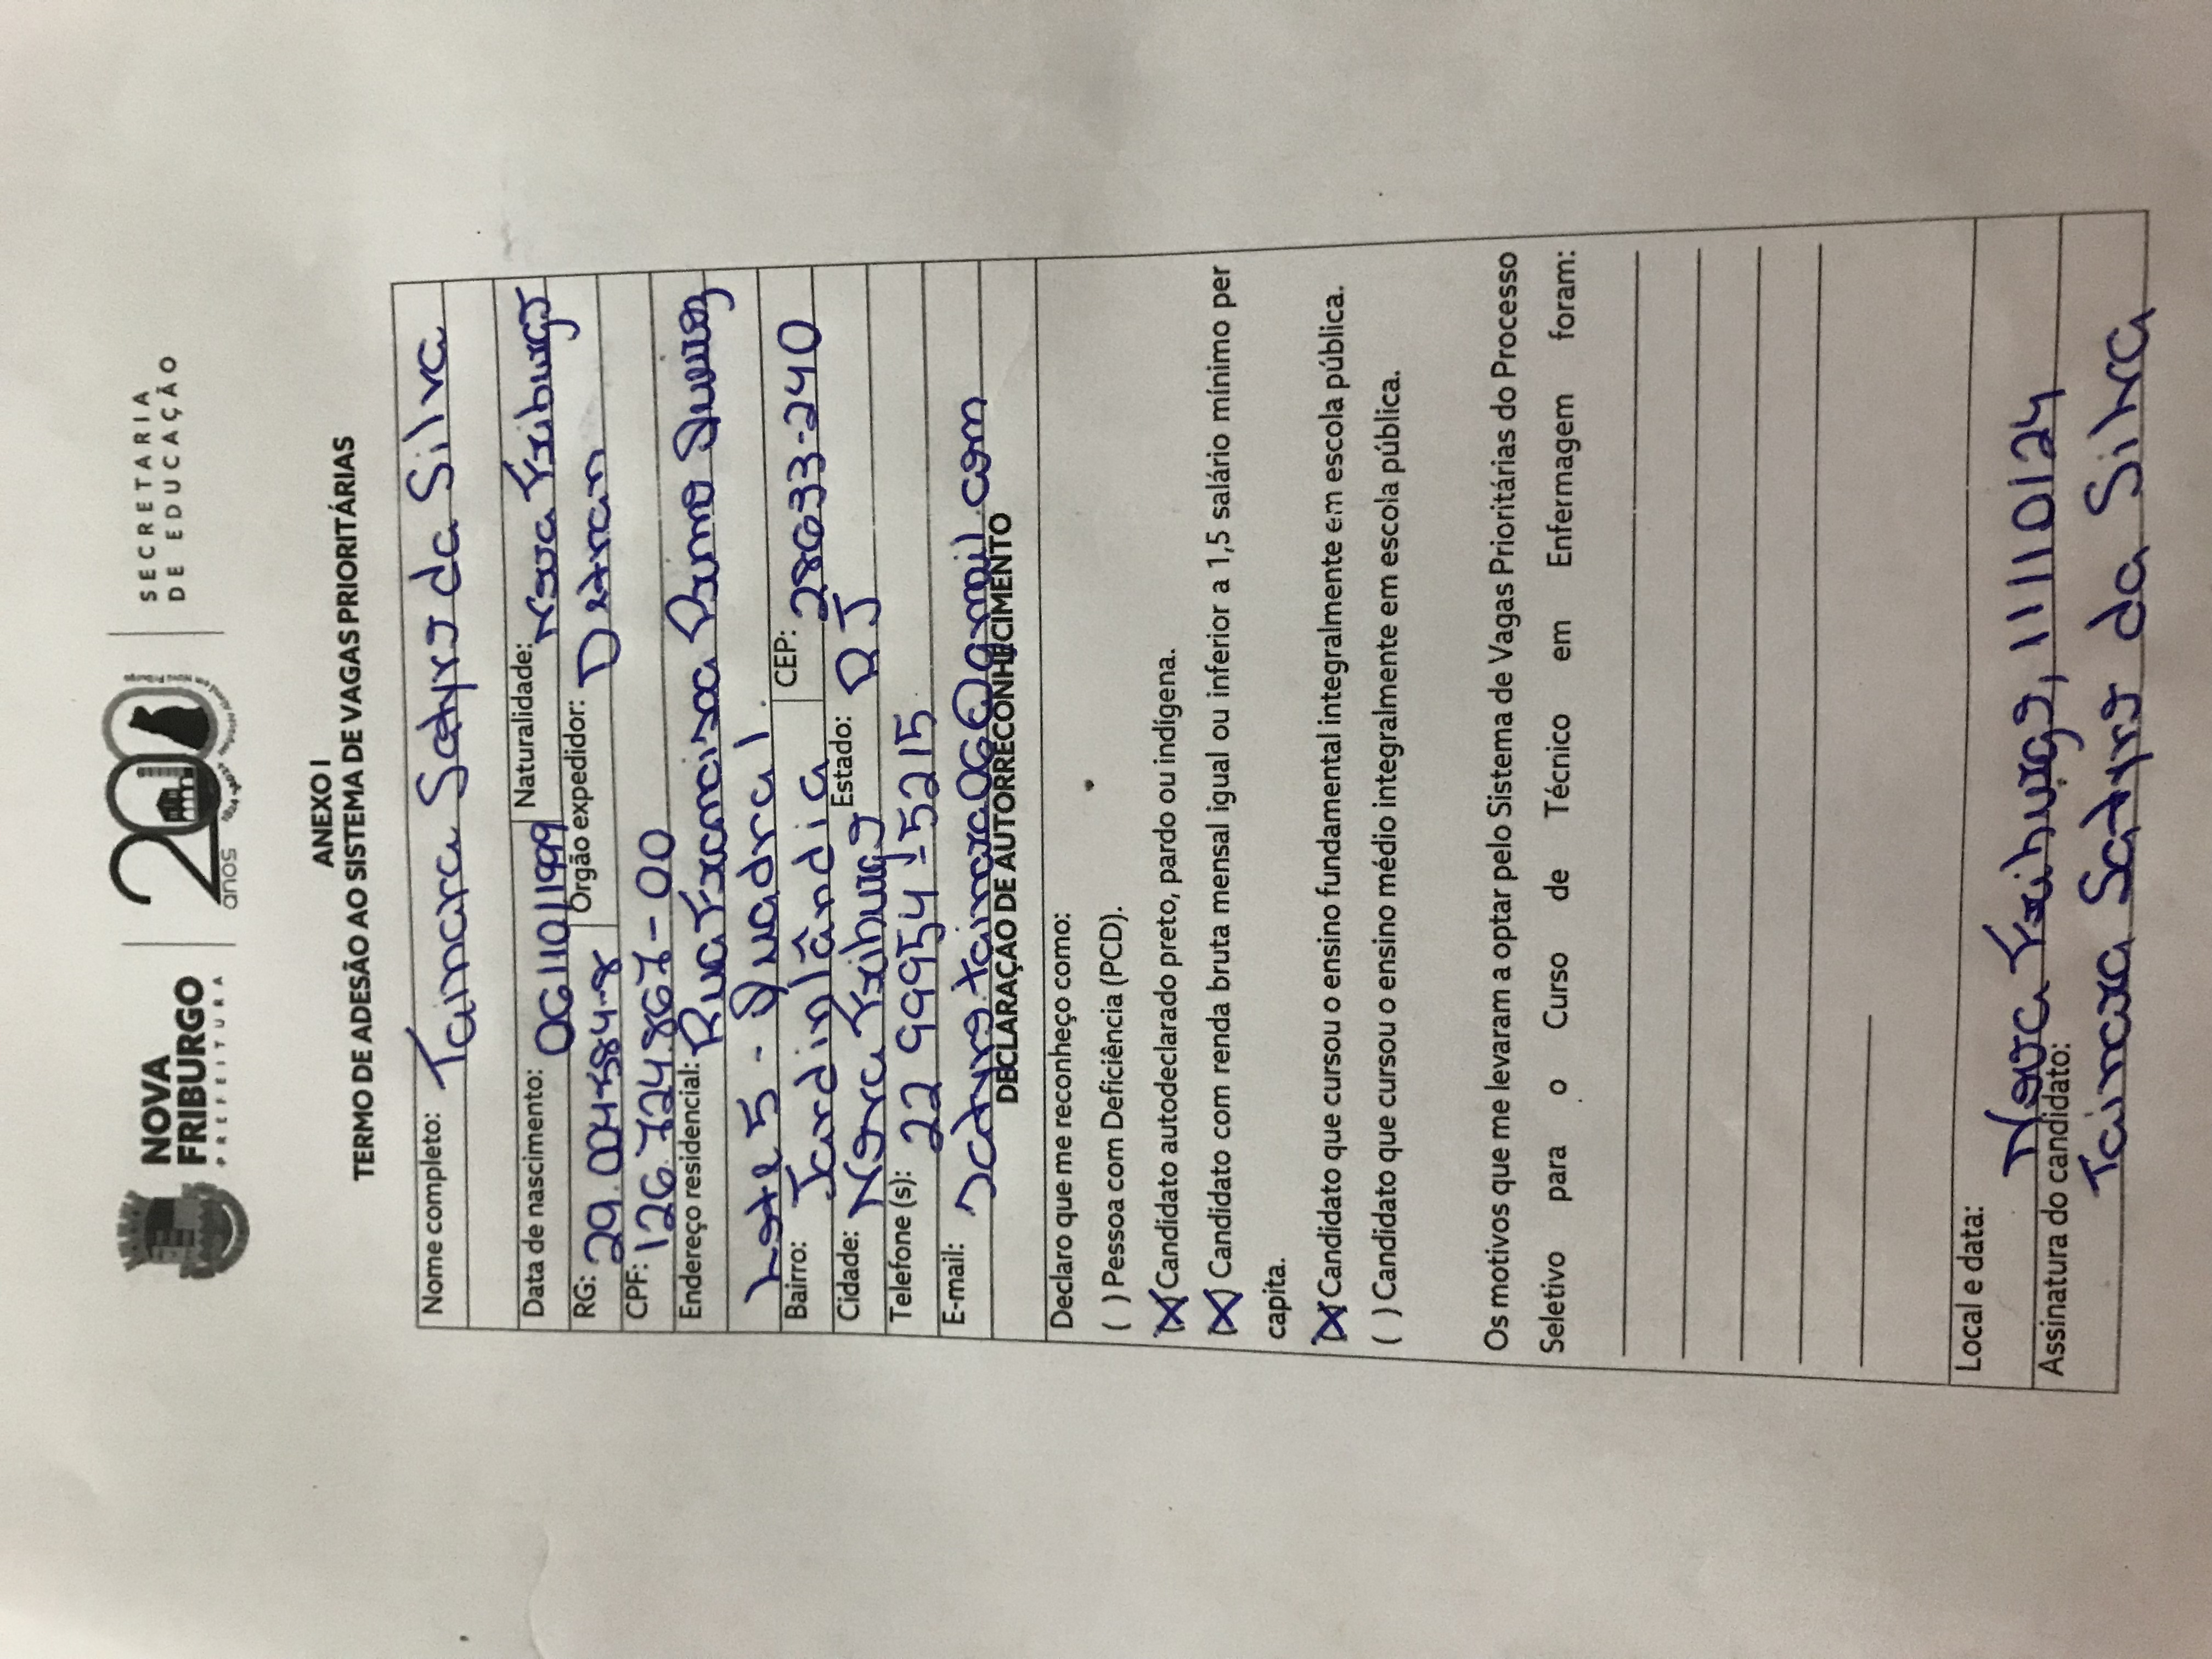 NOVA
FRIBURGO
PREFEITURA
200
anos
SECRETARIA
DE EDUCAÇÃO
ANEXO I
TERMO DE ADESÃO AO SISTEMA DE VAGAS PRIORITÁRIAS
Nome completo: Tainara Satyro da Silva
Data de nascimento: 06/10/1999 Naturalidade: Nova Friburgo
RG: 29.004584-8 Órgão expedidor: Detran
CPF: 126.724.867-00
Endereço residencial: Rua Francisca Primo Queiroz
Lote 5 - Quadra 1.
Bairro: Jardinlândia CEP: 28633-240
Cidade: Nova Friburgo Estado: RJ
Telefone (s): 22 99954-5215
E-mail: satyro.tainara06@gmail.com
DECLARAÇÃO DE AUTORRECONHECIMENTO
Declaro que me reconheço como:
( ) Pessoa com Deficiência (PCD).
(X) Candidato autodeclarado preto, pardo ou indígena.
(X) Candidato com renda bruta mensal igual ou inferior a 1,5 salário mínimo per
capita.
(X) Candidato que cursou o ensino fundamental integralmente em escola pública.
( ) Candidato que cursou o ensino médio integralmente em escola pública.
Os motivos que me levaram a optar pelo Sistema de Vagas Prioritárias do Processo
Seletivo para o Curso de Técnico em Enfermagem foram:
Local e data: Nova Friburgo, 11/10/24
Assinatura do candidato: Tainara Satyro da Silva